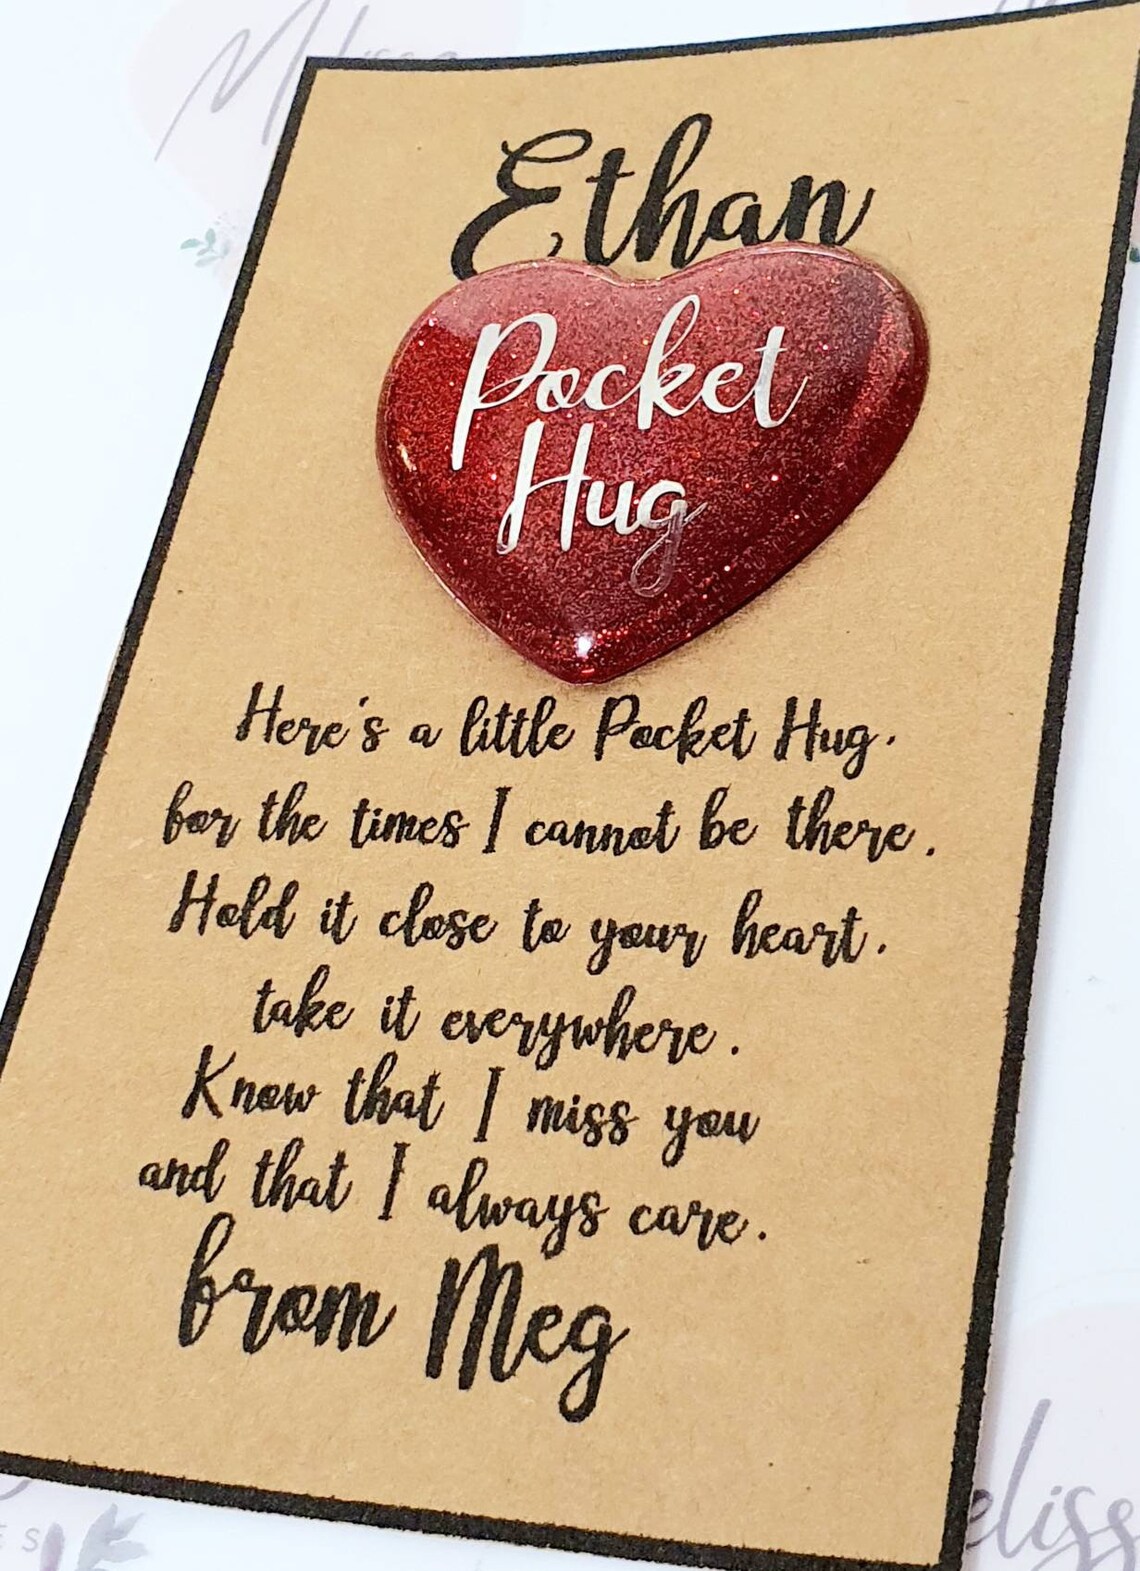 Ethan
Pocket
Hug
Here's a little Pocket Hug.
for the times I cannot be there.
Hold it close to your heart.
take it everywhere.
Know that I miss you
and that I always care.
from Meg